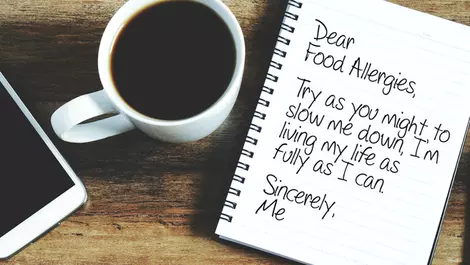 Dear
Food Allergies,
Try as you might to
slow me down, I'm
living my life as
fully as I can.
Sincerely,
Me